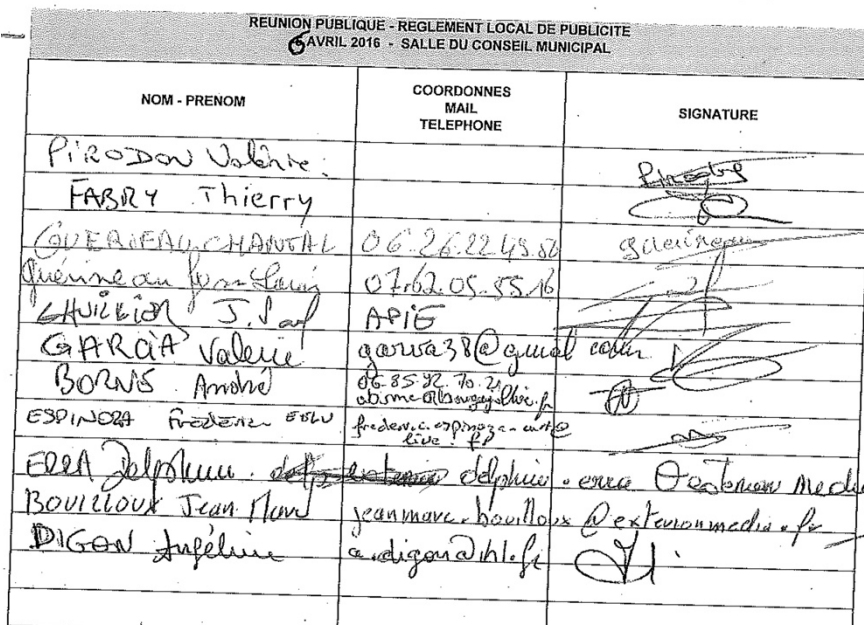 REUNION PUBLIQUE - REGLEMENT LOCAL DE PUBLICITE
6 AVRIL 2016 - SALLE DU CONSEIL MUNICIPAL
NOM - PRENOM
COORDONNES
MAIL
TELEPHONE
SIGNATURE
PIRODON Valérie
FABRY Thierry
GUERINEAU CHANTAL 06.26.22.49.56
Guérineau Jean-Louis 07.62.05.55.16
J. Paul APIE
GARCIA Valerie garva38@gmail.com
BORNE André 06.85.92.70.21
ESPINOZA Frederic
live.fr
ERRA Delphine delphine.erra@exterion media
BOUILLOUX Jean Marc jeanmarc.bouilloux@exterionmedia.fr
DIGON Angéline a.digon@ihl.fr